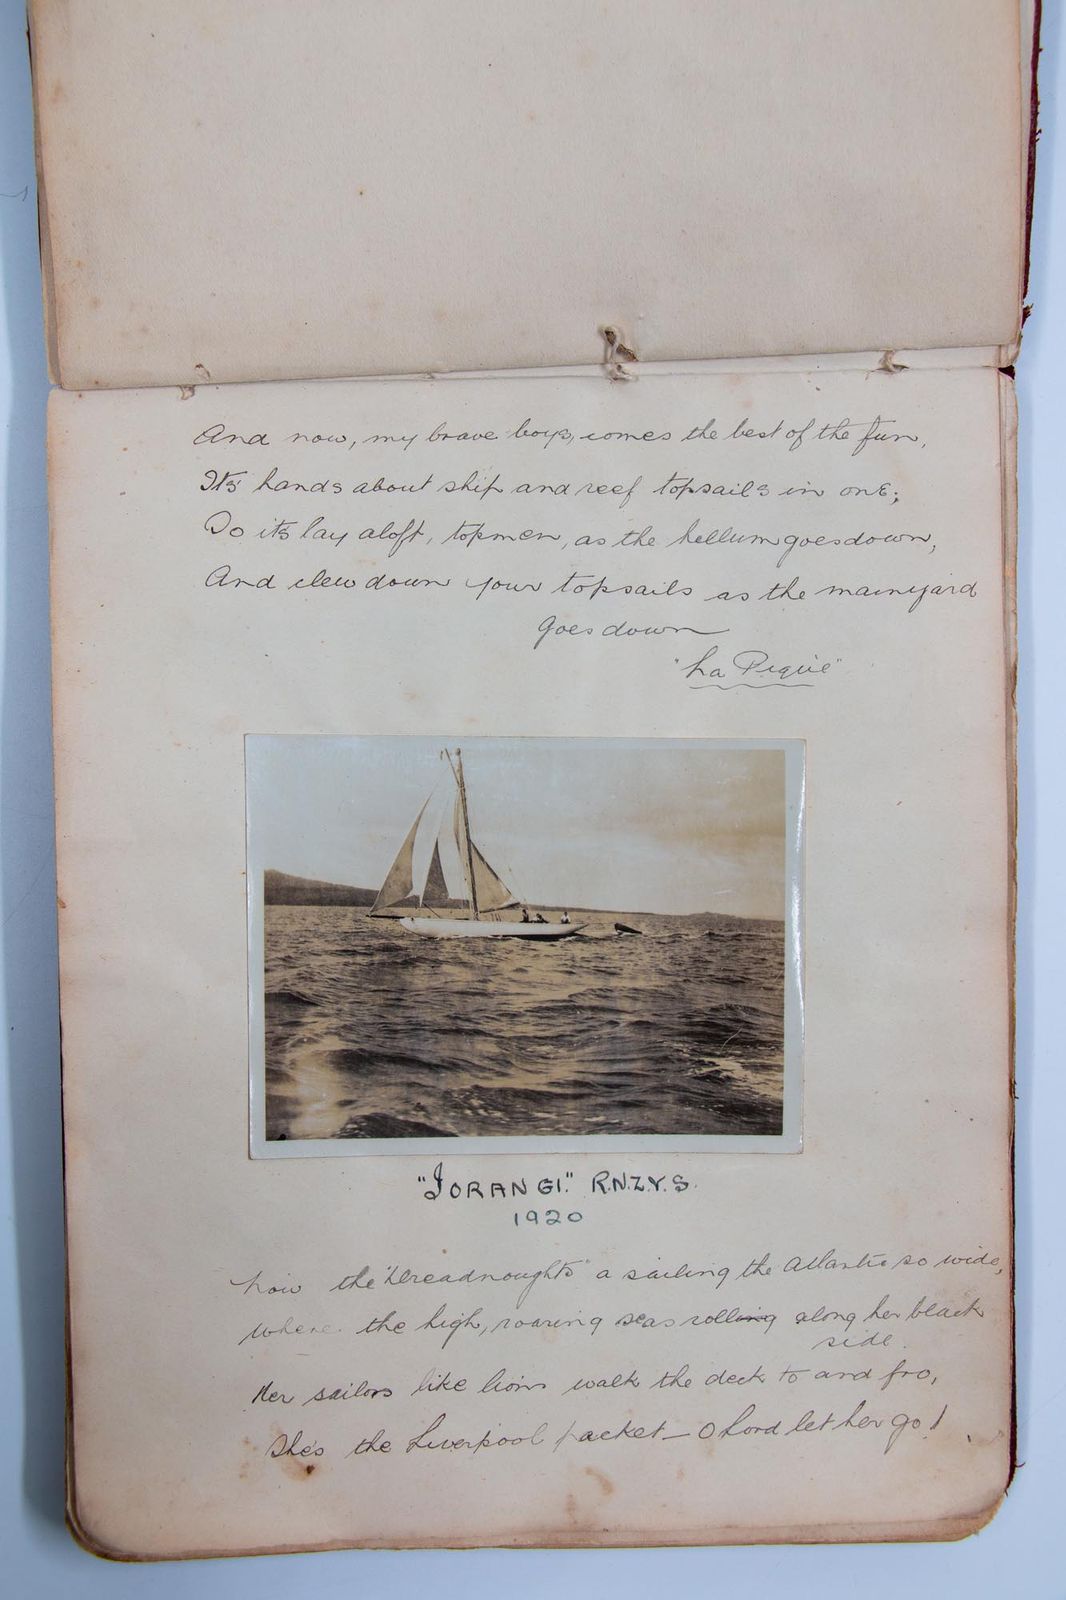 And now, my brave boys, comes the best of the fun,
Its hands about ship and reef topsails in one;
So its lay aloft, topmen, as the hellum goes down,
And clew down your topsails as the mainyard
goes down
"La Pique"
"IORANGI." R.N.Z.Y.S.
1920
Now the "Dreadnoughts" a sailing the Atlantic so wide,
where the high, roaring seas rolling along her black
side.
Her sailors like lions walk the deck to and fro,
She's the Liverpool packet - O Lord let her go!